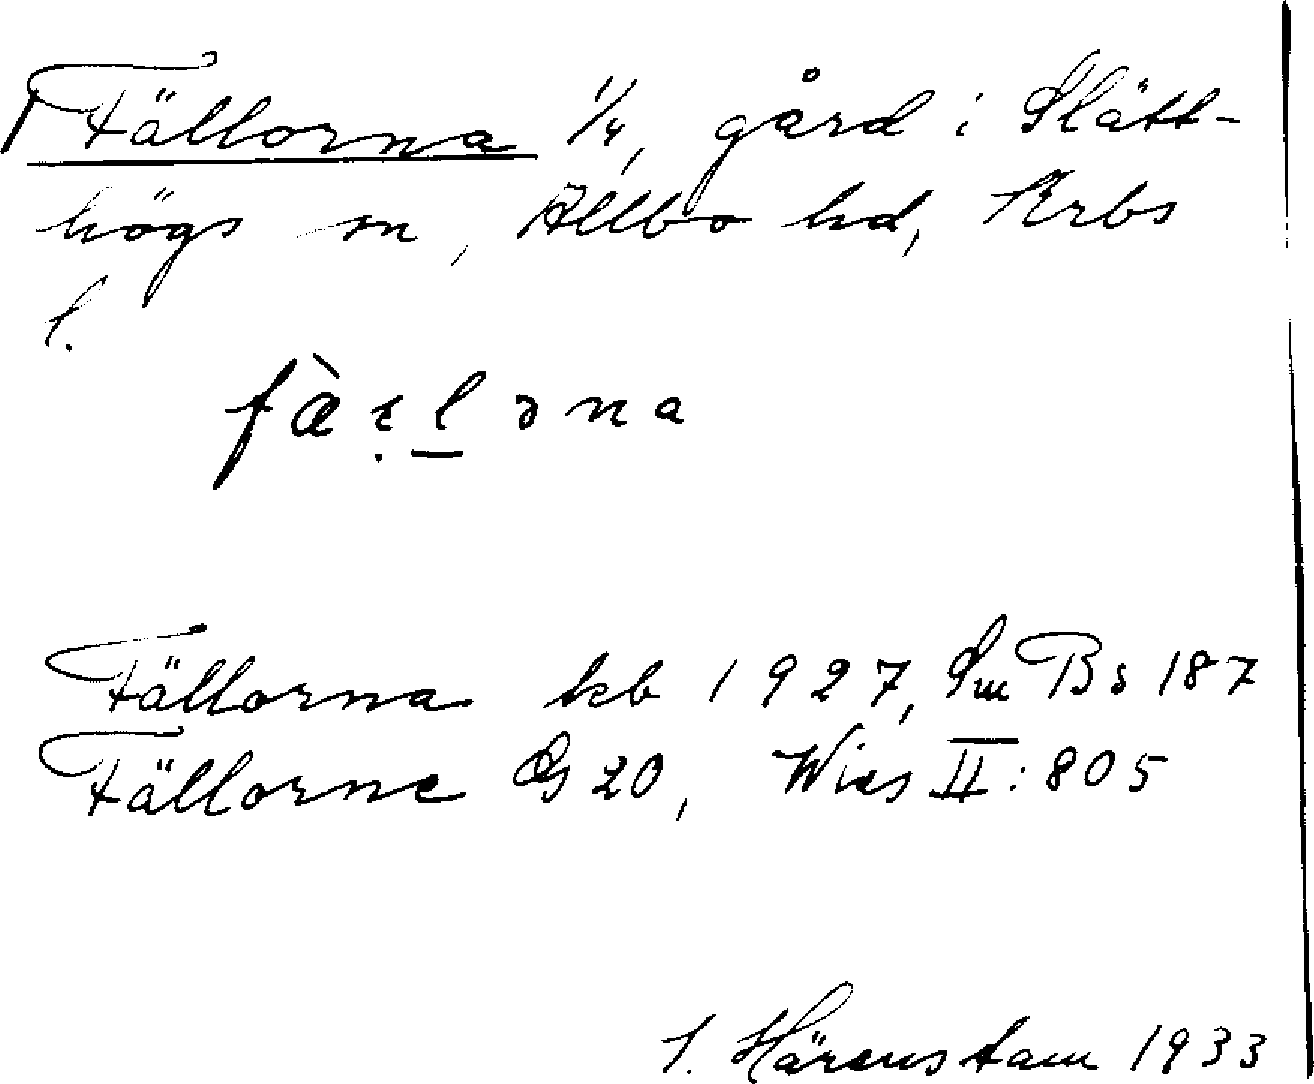 Fällorna 1/4, gård i Slätt-
högs sn, Allbo hd, Krbs
l.
fæ̀ɛ̣l̲ɔna
Fällorna kb 1927, Sm Bs 187
Fällorne Gs 20, Wies II:805
J. Härenstam 1933